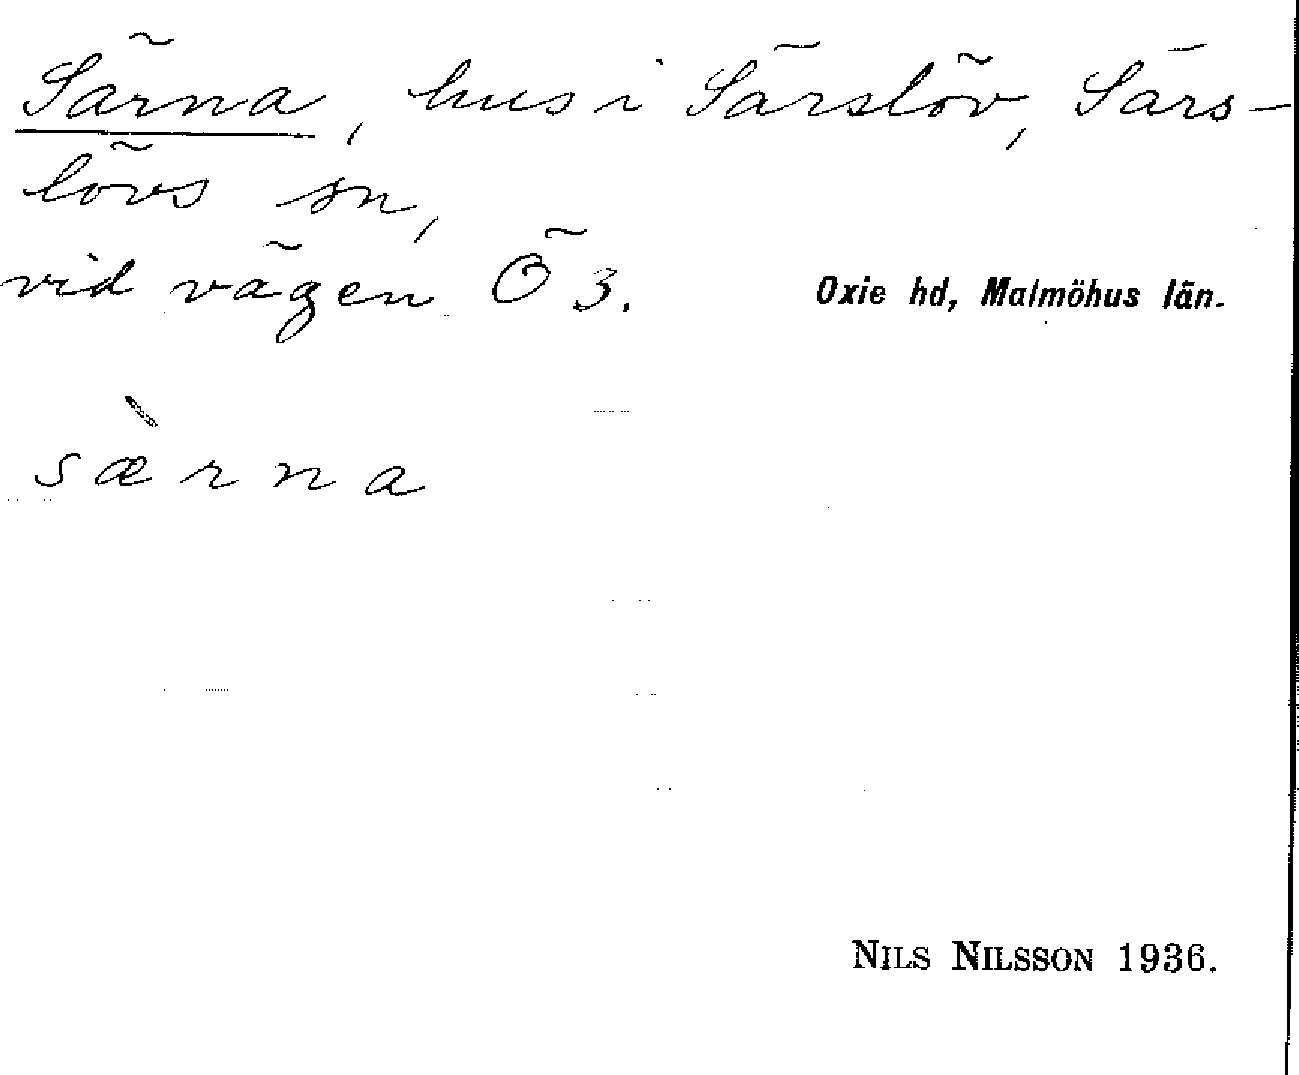 Särna, hus i Särslöv, Särs-
lövs sn,
vid vägen Ö 3. Oxie hd, Malmöhus län.
sæ̀rna
NILS NILSSON 1936.